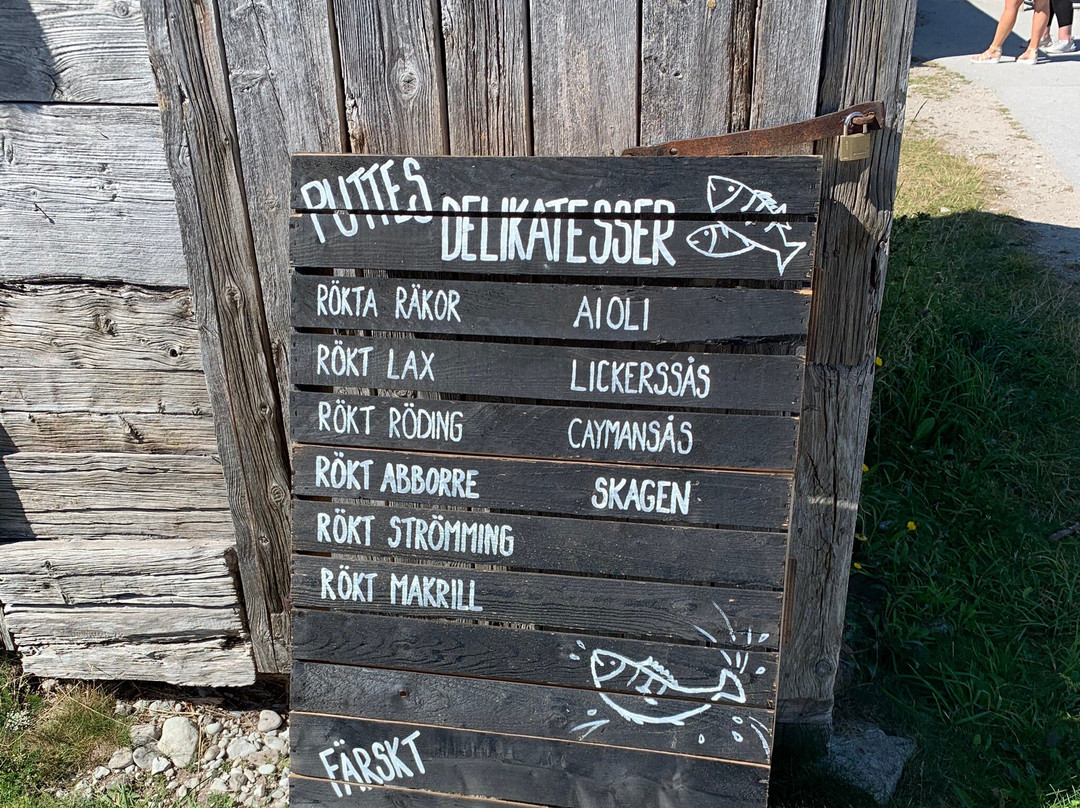 PUTTES DELIKATESSER
RÖKTA RÄKOR AIOLI
RÖKT LAX LICKERSSÅS
RÖKT RÖDING CAYMANSÅS
RÖKT ABBORRE SKAGEN
RÖKT STRÖMMING
RÖKT MAKRILL
FÄRSKT